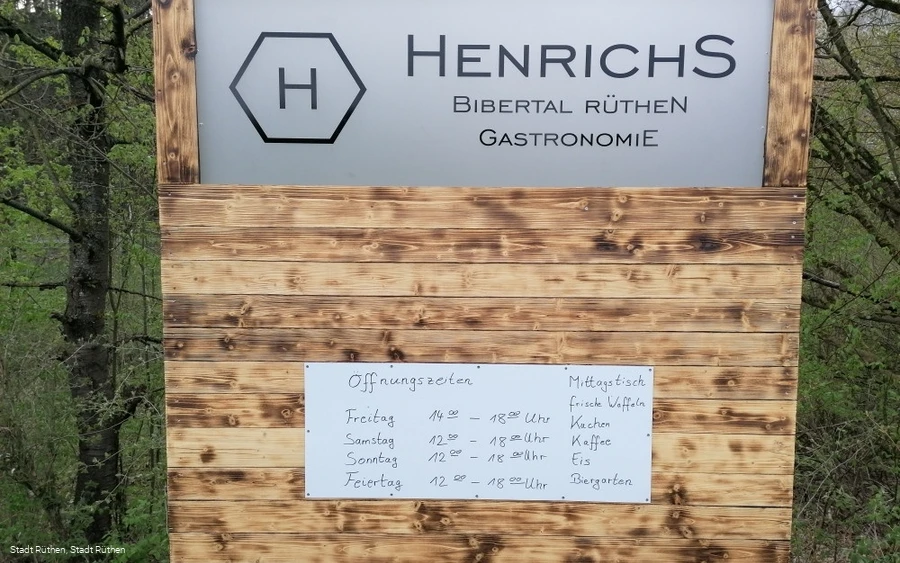 H
HENRICHS
BIBERTAL RÜTHEN
GASTRONOMIE
Öffnungszeiten
Freitag 14 00 – 18 00 Uhr
Samstag 12 00 – 18 00 Uhr
Sonntag 12 00 – 18 00 Uhr
Feiertag 12 00 – 18 00 Uhr
Mittagstisch
frische Waffeln
Kuchen
Kaffee
Eis
Biergarten
Stadt Rüthen, Stadt Rüthen